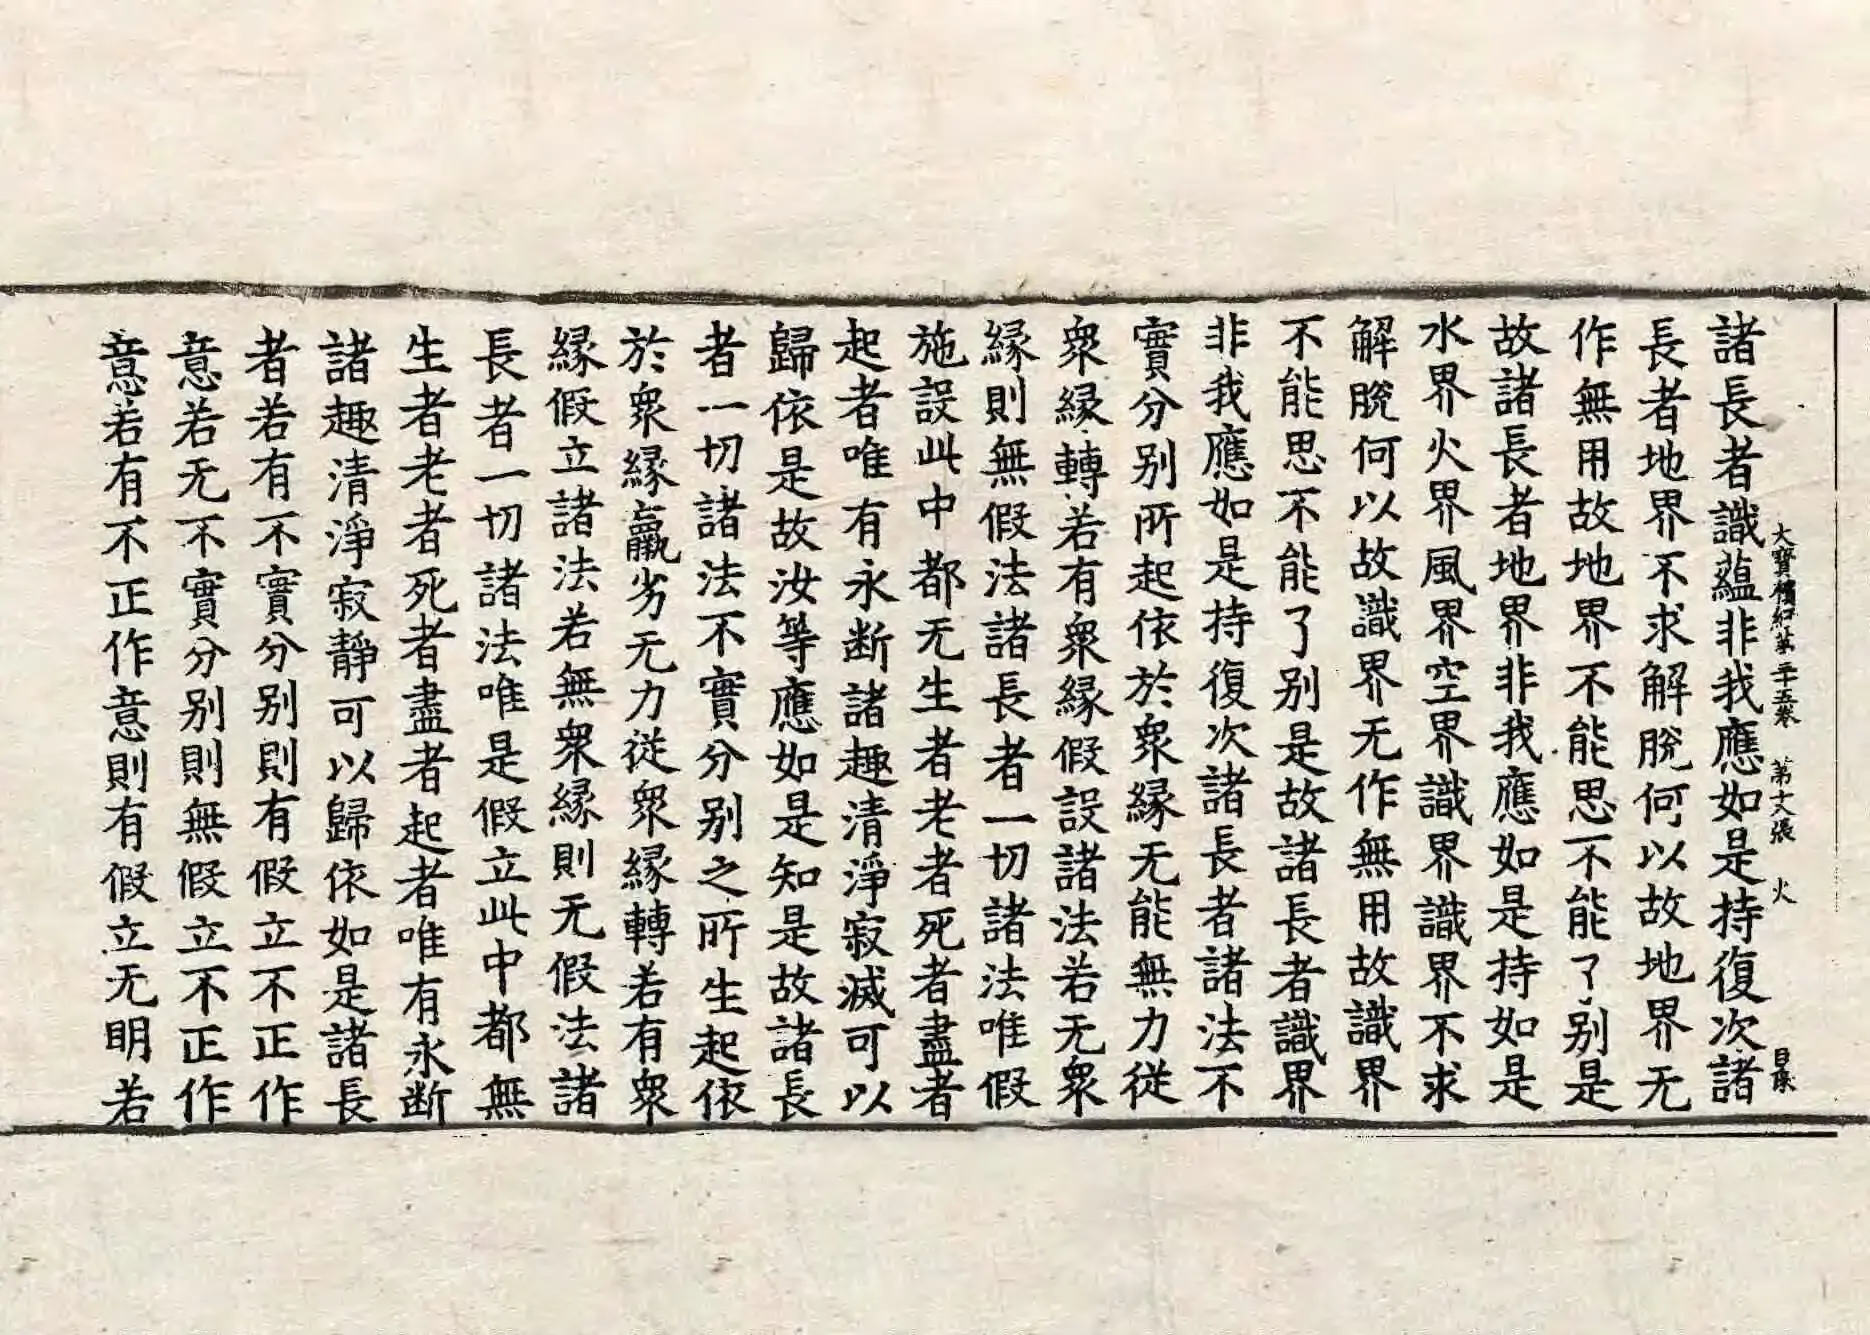 大寶積經第三十五卷 第 張 火
諸長者識蘊非我應如是持復次諸
長者地界不求解脫何以故地界无
作無用故地界不能思不能了別是
故諸長者地界非我應如是持如是
水界火界風界空界識界識界不求
解脫何以故識界无作無用故識界
不能思不能了別是故諸長者識界
非我應如是持復次諸長者諸法不
實分別所起依於衆緣无能無力從
衆緣轉若有衆緣假設諸法若无衆
緣則無假法諸長者一切諸法唯假
施設此中都无生者老者死者盡者
起者唯有永斷諸趣清淨寂滅可以
歸依是故汝等應如是知是故諸長
者一切諸法不實分別之所生起依
於衆緣羸劣无力從衆緣轉若有衆
緣假立諸法若無衆緣則无假法諸
長者一切諸法唯是假立此中都無
生者老者死者盡者起者唯有永斷
諸趣清淨寂靜可以歸依如是諸長
者若有不實分別則有假立不正作
意若无不實分別則無假立不正作
意若有不正作意則有假立无明若